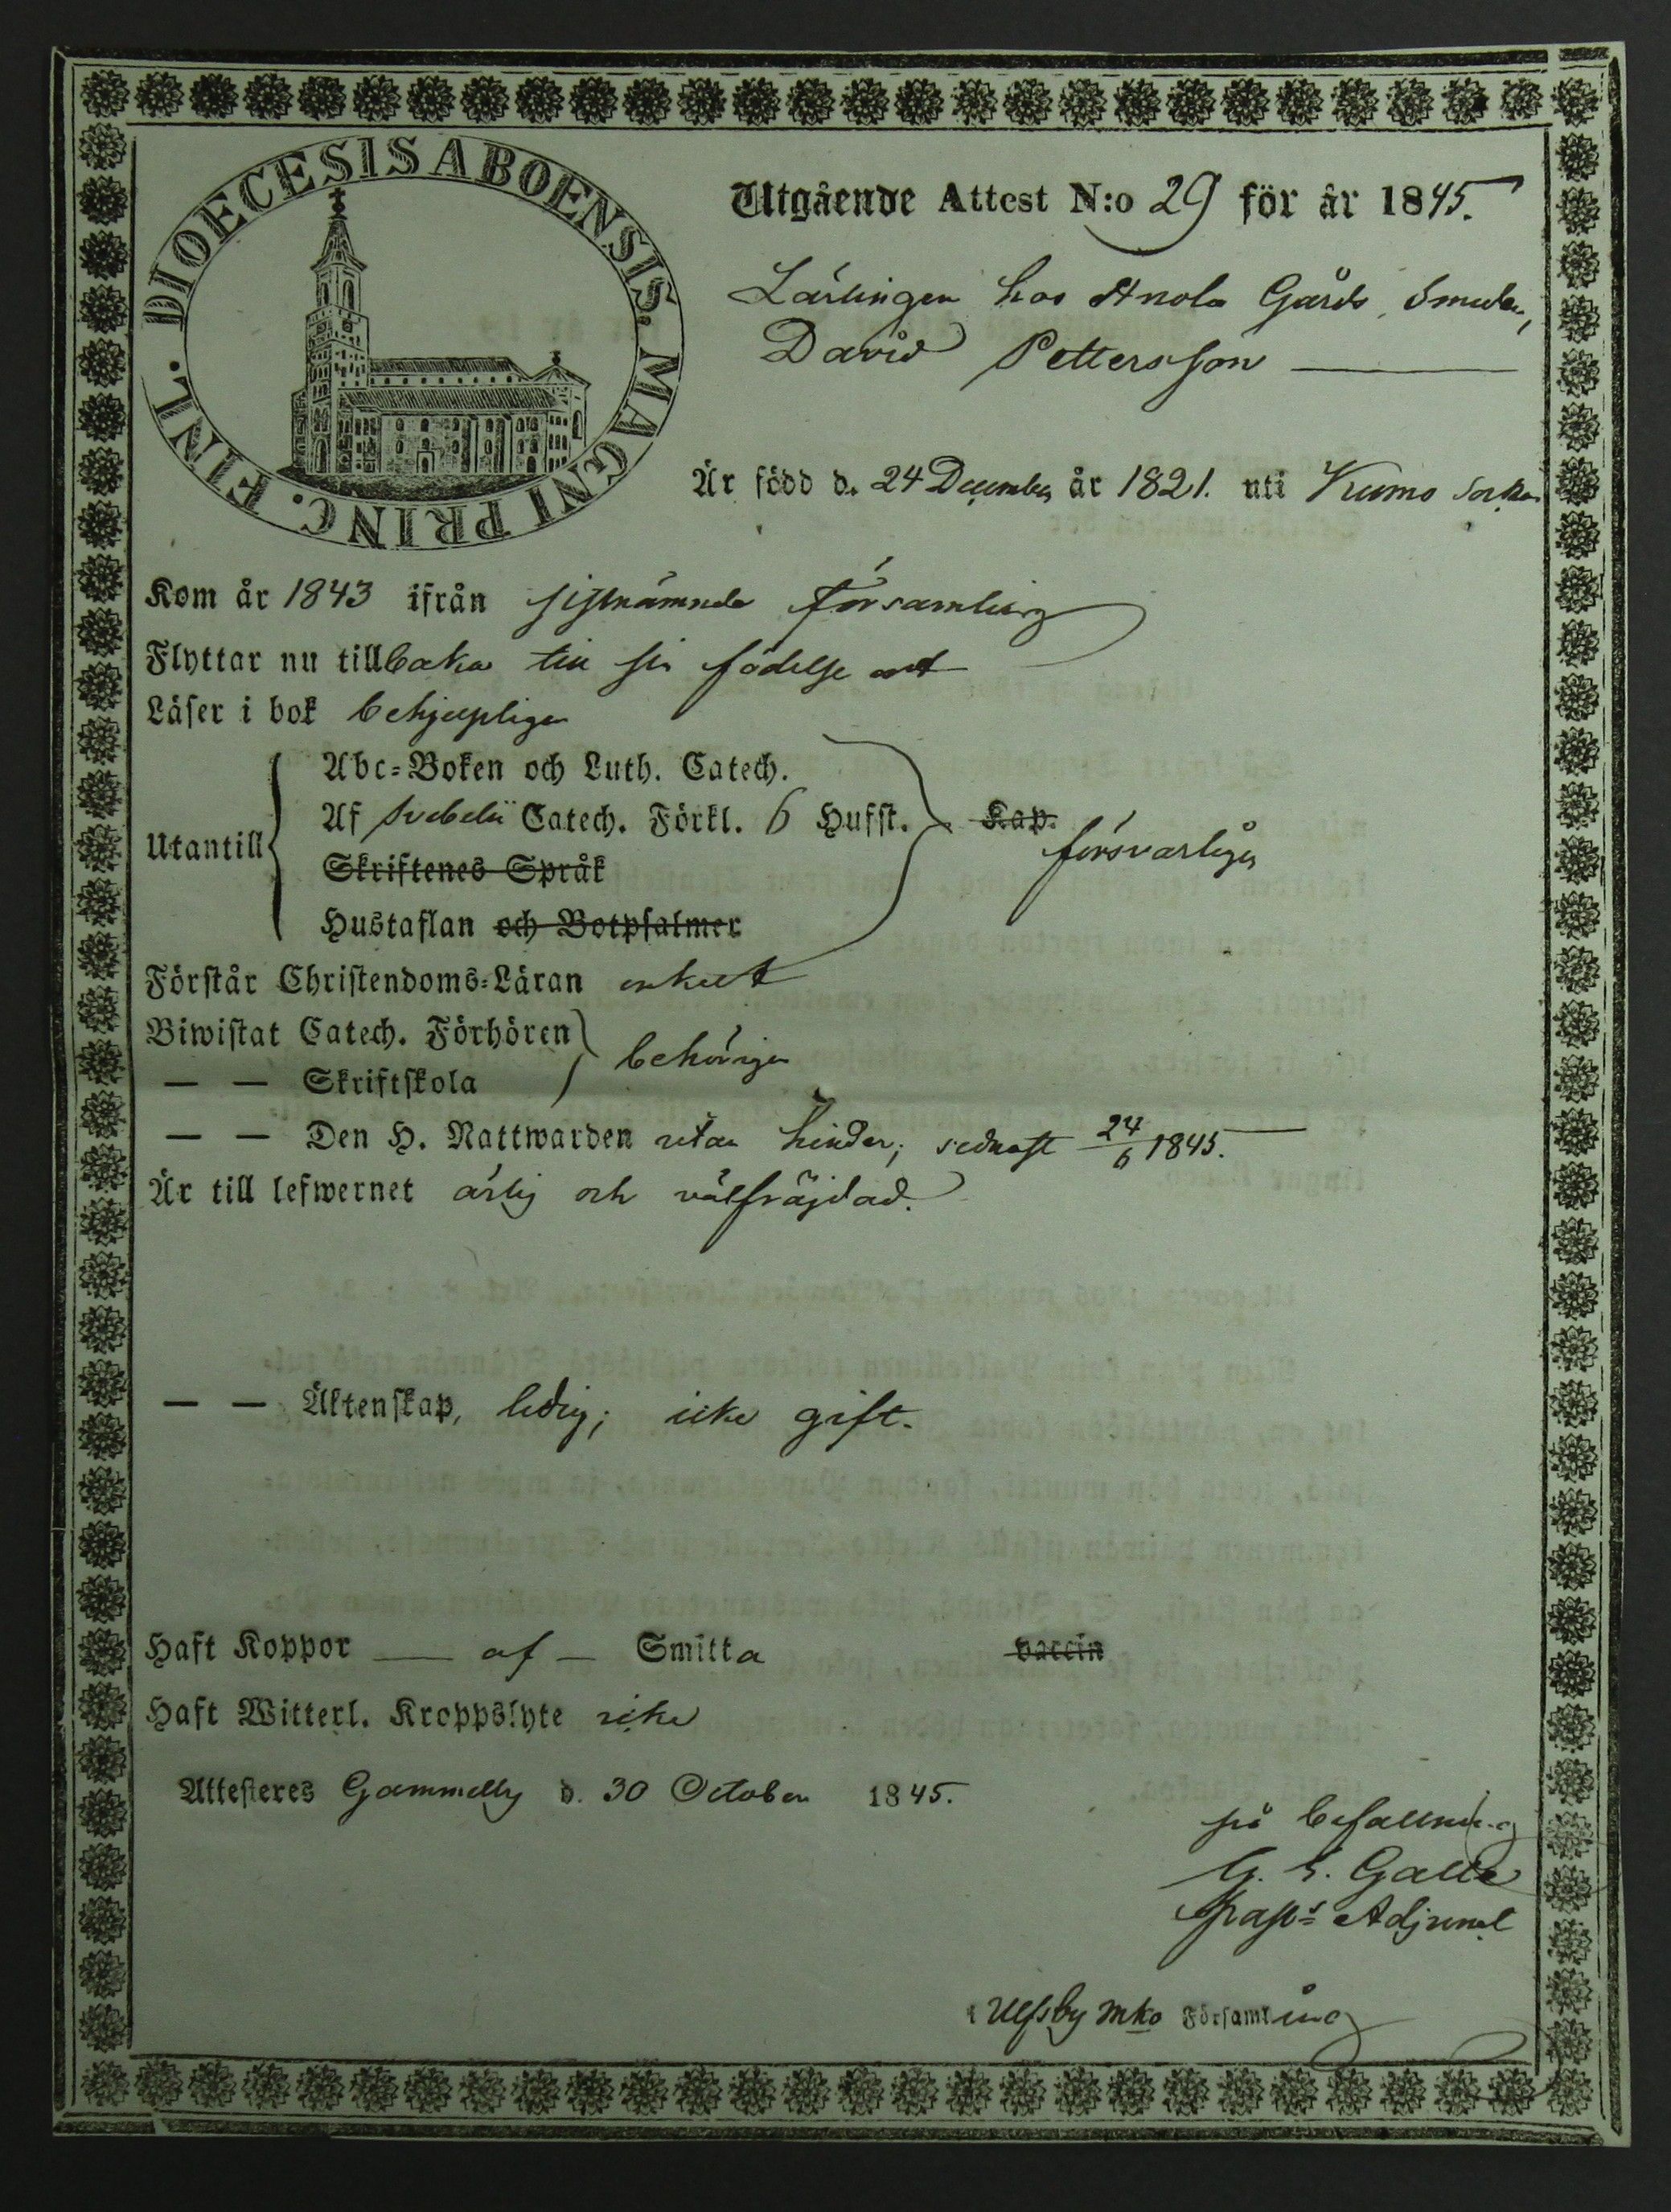 DIOECESIS ABOENSIS. MAGNI PRINC. FINL.
Utgående Attest N:o 29 för år 1845.
Lärlingen hos Anola Gårds Smeden,
David Pettersson
Är född d. 24 December år 1821. uti Kumo Socken
Kom år 1843 ifrån sistnämnde församling
Flyttar nu tillbaka till sin födelse ort
Läser i bok behjelpligen
Abc-Boken och Luth. Catech.
Af Svebelii Catech. Förkl. 6 Hufst. Kap.
Utantill försvarligen
Skriftenes Språk
Hustaflan och Botpsalmer
Förstår Christendoms-Läran enkelt
Biwistat Catech. Förhören
— — Skriftskola behörigen
— — Den H. Nattwarden utan hinder; sednast 24/6 1845.
Är till lefwernet ärlig och välfräjdad.
— — Äktenskap, ledig; icke gift.
Haft Koppor — af — Smitta vaccin
Haft Witterl. Kroppslyte icke
Attesteres Gammelby d. 30 October 1845.
på befallning
G. E. Galle
Past:s Adjunct
i Ulfsby mko Församling